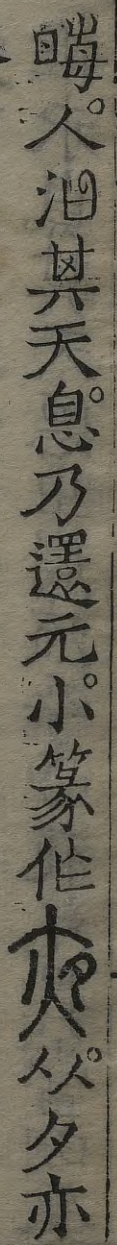 晦。人汨其天。息乃還元。小篆作夜。从夕亦